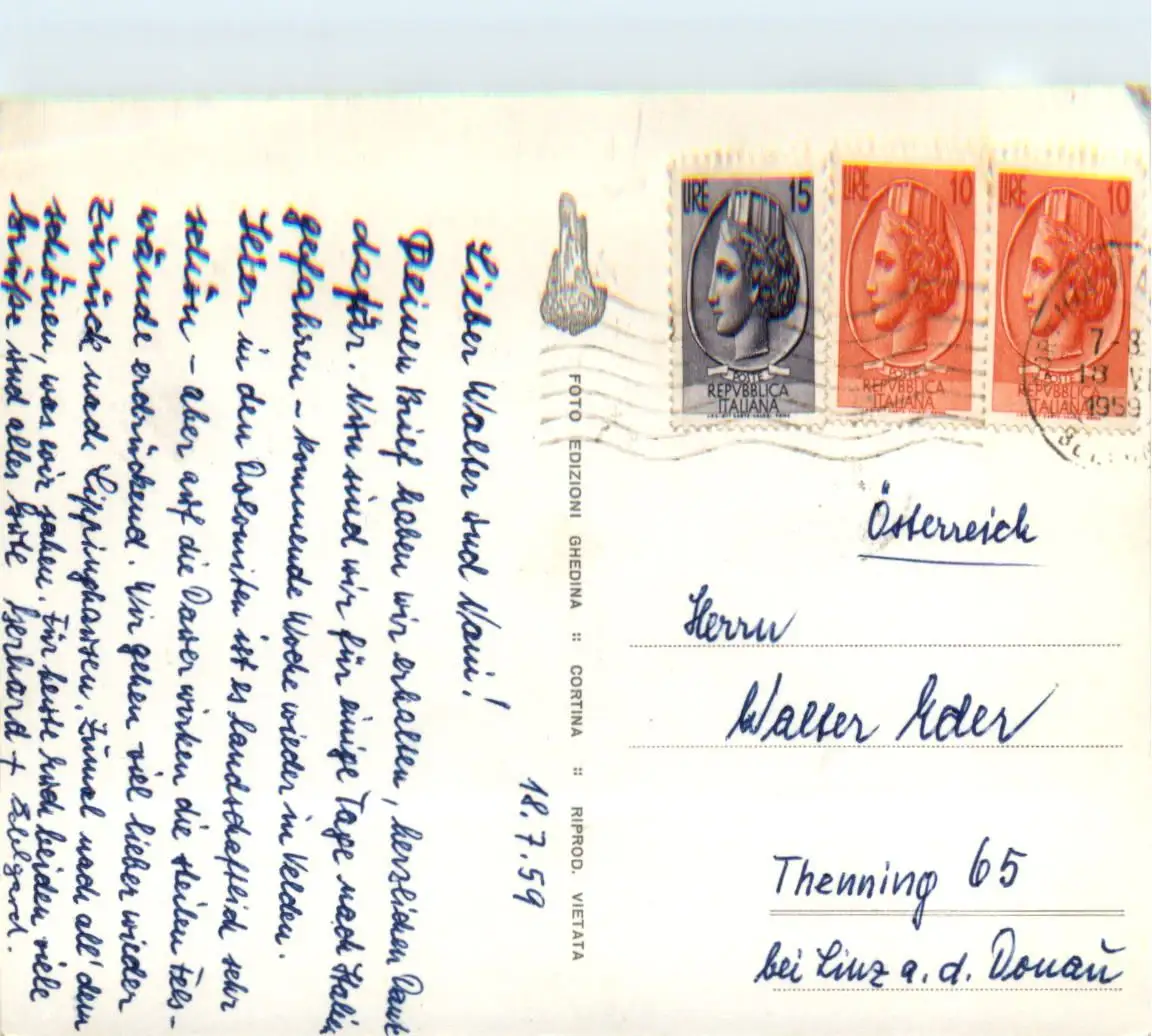 18.7.59
Lieber Walter und Nani!
Deinen Brief haben wir erhalten, herzlichen Dank
dafür. Nun sind wir für einige Tage nach Italien
gefahren – kommende Woche wieder in Velden.
Hier in den Dolomiten ist es landschaftlich sehr
schön – aber auf die Dauer wirken die steilen Fels-
wände erdrückend. Wir gehen viel lieber wieder
zurück nach Lippinghausen. Zumal nach all' dem
schönen, was wir sahen. Für heute Euch beiden viele
Grüße und alles Gute Gerhard +
FOTO EDIZIONI GHEDINA :: CORTINA :: RIPROD. VIETATA
LIRE 15
POSTE
REPVBBLICA
ITALIANA
LIRE 10
POSTE
REPVBBLICA
ITALIANA
LIRE 10
POSTE
REPVBBLICA
ITALIANA
1959
Österreich
Herrn
Walter Eder
Thenning 65
bei Linz a. d. Donau